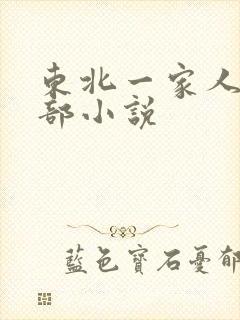 東北一家人
部小說
藍色寶石憂郁